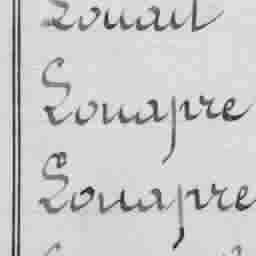 Louait
Louapre
Louapre